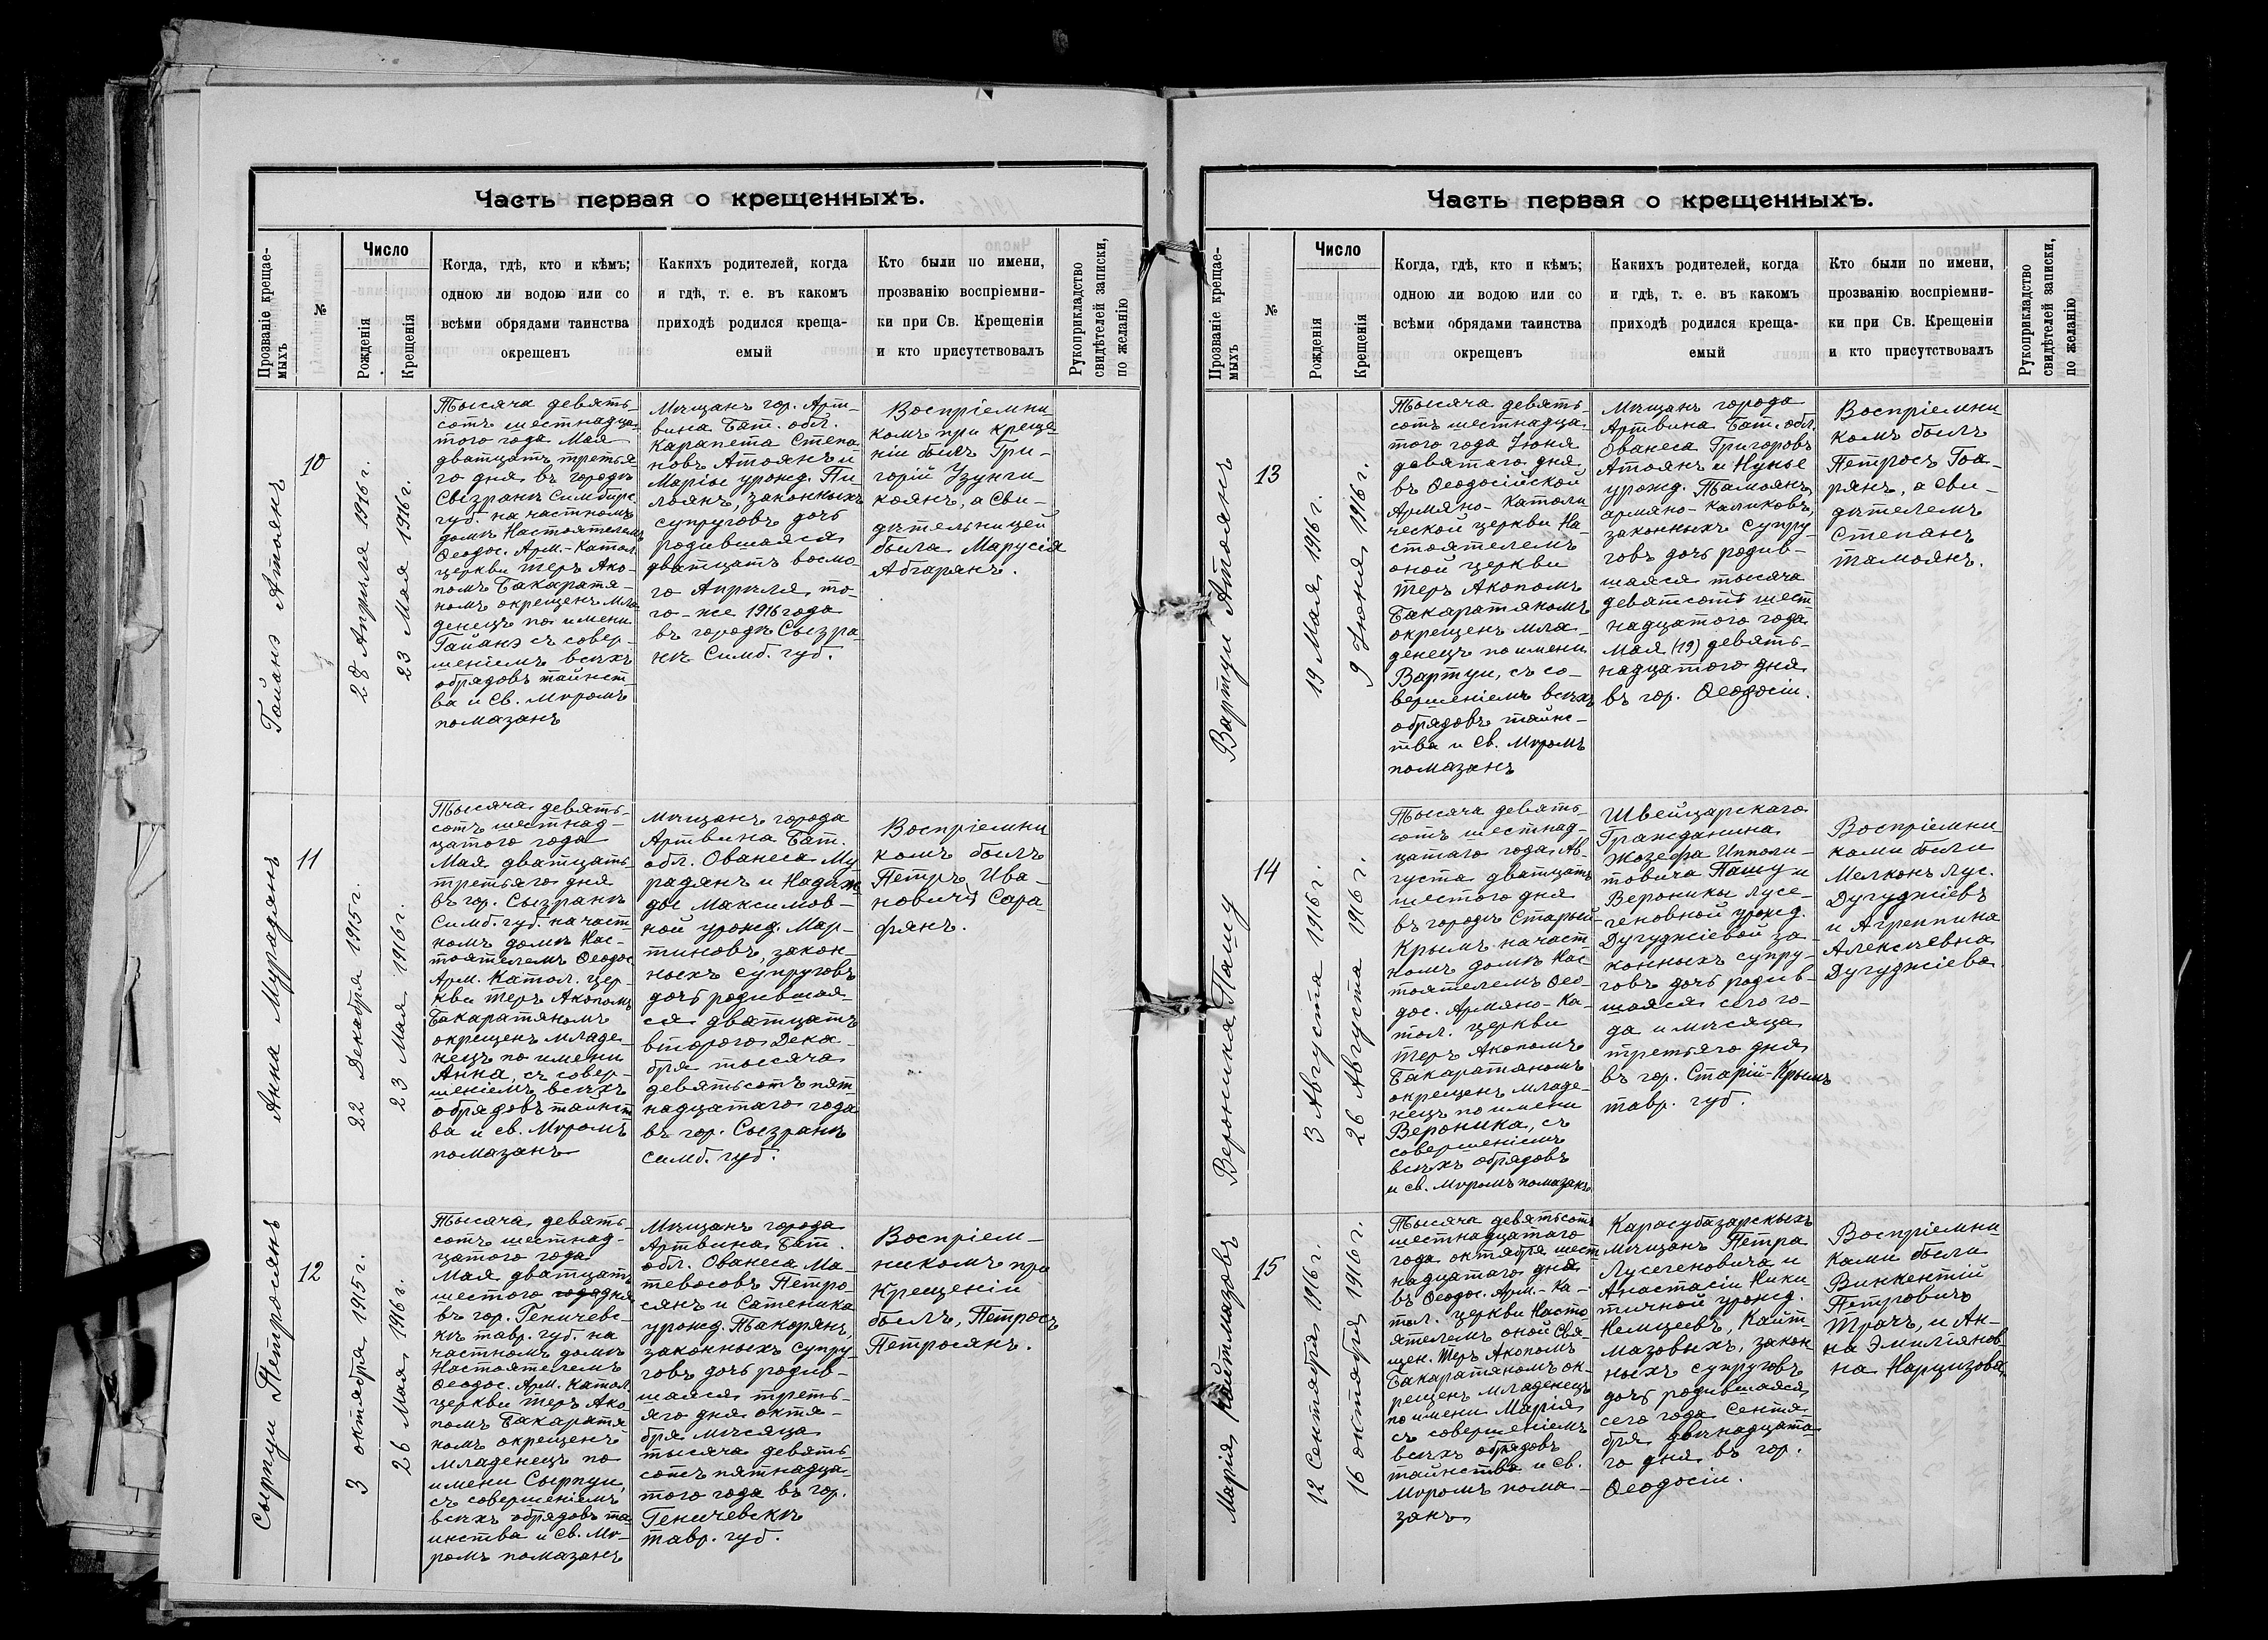 Часть первая о крещенныхъ.
Прозваніе крещае-
мыхъ
№
Число
Рожденія
Крещенія
Когда, гдѣ, кто и кѣмъ;
одною ли водою или со
всѣми обрядами таинства
окрещенъ
Какихъ родителей, когда
и гдѣ, т. е. въ какомъ
приходѣ родился креща-
емый
Кто были по имени,
прозванію воспріемни-
ки при Св. Крещеніи
и кто присутствовалъ
Рукоприкладство
свидѣтелей записки,
по желанію
Гаіанэ Атоянъ
10
28 Апрѣля 1916 г.
23 Мая 1916 г.
Тысяча девять-
сотъ шестнадца-
того года Мая
дватцать третья-
го дня въ городѣ
Сызранѣ Симбирс.
губ. на частномъ
домѣ Настоятелемъ
Ѳеодос. Арм.-Катол.
церкви Теръ Ако-
помъ Бакаратя-
номъ окрещенъ мла-
денецъ по имени
Гаіанэ съ совер-
шеніемъ всѣхъ
обрядовъ таинст
ва и Св. Мѵромъ
помазанъ
Мѣщанъ гор. Арт-
вина Бат. обл.
Карапета Степа-
новъ Атоянъ и
Маріи урожд. Пи-
лоянъ, законныхъ
супруговъ дочь
родившаяся
дватцать восмо-
го Апрѣля, то-
го-же 1916 года
въ городѣ Сызра-
нѣ Симб. губ.
Воспріемни-
комъ при креще-
ніи былъ Гри-
горій Узунги-
коянъ, а Сви-
дѣтельницей
была Марусія
Абгарянъ.
Анна Мурадянъ
11
22 Декабря 1915 г.
23 Мая 1916 г.
Тысяча девять-
сотъ шестнад-
цатого года
Мая дватцать
третьяго дня
въ гор. Сызранѣ
Симб. губ. на част
номъ домѣ Нас-
тоятелемъ Ѳеодос
Арм. Катол. цер-
кви Теръ Акопомъ
Бакаратяномъ
окрещенъ младе-
нецъ по имени
Анна, съ совер-
шеніемъ всѣхъ
обрядовъ таинст
ва и св. Мѵромъ
помазанъ
Мѣщанъ города
Артвина Бат.
обл. Ованеса Му
радянъ и Надѣж
дѣ Максимов-
ной урожд. Мар-
тиновъ, закон-
ныхъ супруговъ
дочь родившая-
ся дватцать
второго Дека-
бря тысяча
девятьсотъ пят
надцатаго года
въ гор. Сызранѣ
Симб. губ.
Воспріемни
комъ былъ
Петръ Ива-
новичъ Сара-
фянъ.
Сырпуи Петросянъ
12
3 октября 1915 г.
26 Мая 1916 г.
Тысяча девять-
сотъ шестнад-
цатого года
Мая дватцать
шестого года дня
въ гор. Геничевс-
кѣ тавр. губ. на
частномъ домѣ
Настоятелемъ
Ѳеодос. Арм. Катол.
церкви Теръ Ако
помъ Бакаратя
номъ окрещенъ
младенецъ по
имени Сырпуи,
съ совершеніемъ
всѣхъ обрядовъ та
инства и Св. Мѵ-
ромъ помазанъ
Мѣщанъ города
Артвина Бат.
обл. Ованеса Ма-
тевосовъ Петро-
сянъ и Сатеника
урожд. Такорянъ,
законныхъ супру-
говъ дочь родив-
шаяся треть-
яго дня октя-
бря мѣсяца
тысяча девять-
сотъ пятнадца-
того года въ гор.
Геничевскѣ
тавр. губ.
Воспріем-
никомъ при
Крещеніи
былъ, Петросъ
Петросянъ.
Часть первая о крещенныхъ.
Прозваніе крещае-
мыхъ
№
Число
Рожденія
Крещенія
Когда, гдѣ, кто и кѣмъ;
одною ли водою или со
всѣми обрядами таинства
окрещенъ
Какихъ родителей, когда
и гдѣ, т. е. въ какомъ
приходѣ родился креща-
емый
Кто были по имени,
прозванію воспріемни-
ки при Св. Крещеніи
и кто присутствовалъ
Рукоприкладство
свидѣтелей записки,
по желанію
Вартуи Атоянъ
13
19 Мая 1916 г.
9 Іюня 1916 г.
Тысяча девять-
сотъ шестнадца
того года Іюня
девятаго дня
въ Ѳеодосійской
Армяно-Католи
ческой церкви На-
стоятелемъ
оной церкви
Теръ Акопомъ
Бакаратяномъ
окрещенъ мла-
денецъ по имени
Вартуи, съ со-
вершеніемъ всѣхъ
обрядовъ таинс-
тва и Св. Мѵромъ
помазанъ
Мѣщанъ города
Артвина Бат. обл.
Ованеса Григоровъ
Атоянъ и Нунье
урожд. Тамоянъ,
армяно-каликовъ,
законныхъ супру
говъ дочь родив-
шаяся тысяча
девятсотъ шест
надцатого года
Мая (19) девять-
надцатого дня
въ гор. Ѳеодосіи.
Воспріемни-
комъ былъ
Петросъ Гоа-
рянъ, а сви-
дѣтелемъ
Степанъ
Тамоянъ.
Вероника Пашу
14
3 Августа 1916 г.
26 Августа 1916 г.
Тысяча девять-
сотъ шестнад-
цатаго года Ав-
густа дватцать
шестого дня
въ городѣ Старый-
Крымъ на част-
номъ домѣ Нас-
тоятелемъ Ѳео-
дос. Армяно-Ка-
тол. церкви
Теръ Акопомъ
Бакаратяномъ
окрещенъ младе-
нецъ по имени
Вероника, съ
совершеніемъ
всѣхъ обрядовъ
и св. Мѵромъ помазанъ
Швейцарскаго
Гражданина
Жозефа Ипполи-
товича Пашу и
Вероники Лусе-
геновной урожд.
Дугуджіевой за-
конныхъ супру-
говъ дочь родив-
шаяся сего го-
да и мѣсяца
третьяго дня
въ гор. Старій-Крымъ
тавр. губ.
Воспріемни-
ками были
Мелконъ Лус.
Дугуджіевъ
и Агреппина
Алексѣевна
Дугуджіева
Марія Кайтмазовъ
15
12 Сентября 1916 г.
16 октября 1916 г.
Тысяча девятьсотъ
шестнадцатаго
года октября шест
надцатаго дня
въ Ѳеодос. Арм.-Ка-
тол. церкви Насто
ятелемъ оной Свя-
щен. Теръ Акопомъ
Бакаратяномъ ок-
рещенъ младенецъ
по имени Марія
съ совершеніемъ
всѣхъ обрядовъ
таинства и Св.
Мѵромъ пома-
занъ
Карасубазарскихъ
мѣщанъ Петра
Лусегеновича и
Анастасіи Ники
тичной урожд.
Немцеевъ, Кайт-
мазовыхъ, закон
ныхъ супруговъ
дочь родившаяся
сего года Сентя
бря двѣнадцата
го дня въ гор.
Ѳеодосіи.
Воспріемни-
ками были
Викентій
Петровичъ
Трачъ, и Ан-
на Эмиліянов
на Нарцизова